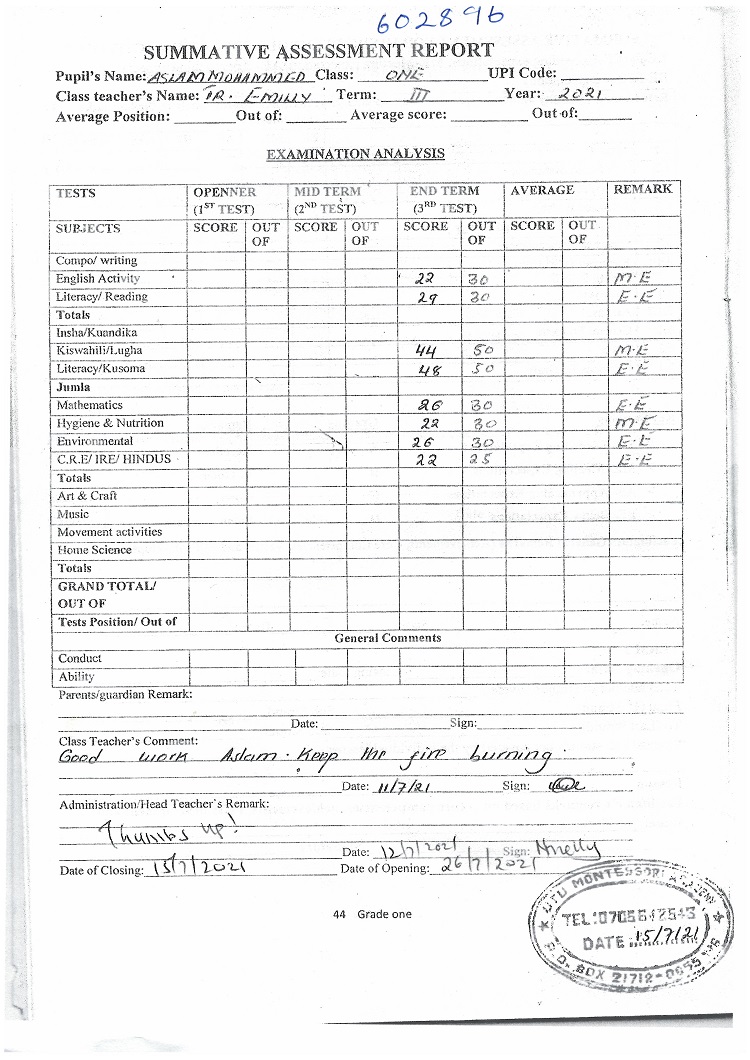 602896
SUMMATIVE ASSESSMENT REPORT
Pupil's Name: ASLAM MOHAMMED Class: ONE UPI Code:
Class teacher's Name: TR. EMILLY Term: III Year: 2021
Average Position: Out of: Average score: Out of:
EXAMINATION ANALYSIS
TESTS OPENNER (1ST TEST) MID TERM (2ND TEST) END TERM (3RD TEST) AVERAGE REMARK
SUBJECTS SCORE OUT OF SCORE OUT OF SCORE OUT OF SCORE OUT OF
Compo/ writing
English Activity 22 30 M.E
Literacy/ Reading 29 30 E.E
Totals
Insha/Kuandika
Kiswahili/Lugha 44 50 M.E
Literacy/Kusoma 48 50 E.E
Jumla
Mathematics 26 30 E.E
Hygiene & Nutrition 22 30 M.E
Environmental 26 30 E.E
C.R.E/ IRE/ HINDUS 22 25 E.E
Totals
Art & Craft
Music
Movement activities
Home Science
Totals
GRAND TOTAL/ OUT OF
Tests Position/ Out of
General Comments
Conduct
Ability
Parents/guardian Remark:
Date: Sign:
Class Teacher's Comment:
Good work Aslam. Keep the fire burning.
Date: 11/7/21 Sign:
Administration/Head Teacher's Remark:
Thumbs up!
Date: 12/7/2021 Sign: Nnelly
Date of Closing: 15/7/2021 Date of Opening: 26/7/2021
44 Grade one
MONTESSORI ACADEMY
TEL:
DATE 15/7/21
P.O. BOX 21712-